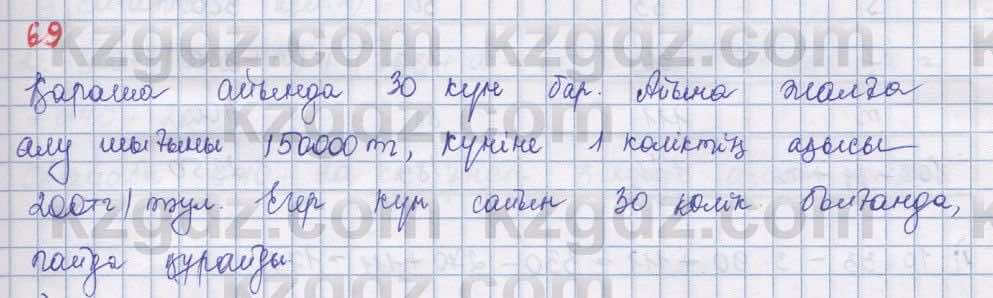 69
Қараша айында 30 күн бар. Айына жалға
алу шығыны 150000 т, күніне 1 көліктің ақысы
200тг/тәул. Егер күн сайын 30 көлік болғанда,
пайда құрайды
kzgdz.com kzgdz.com